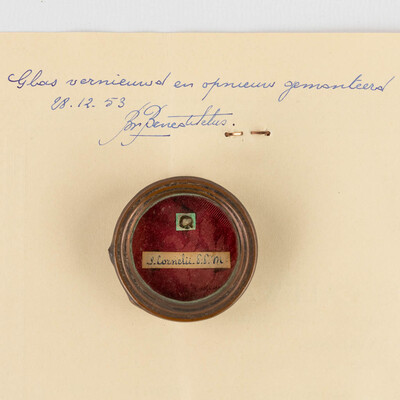 Glas vernieuwd en opnieuw gemonteerd
28.12.53
Br. Benedictus.
S. Cornelii. E. P. M